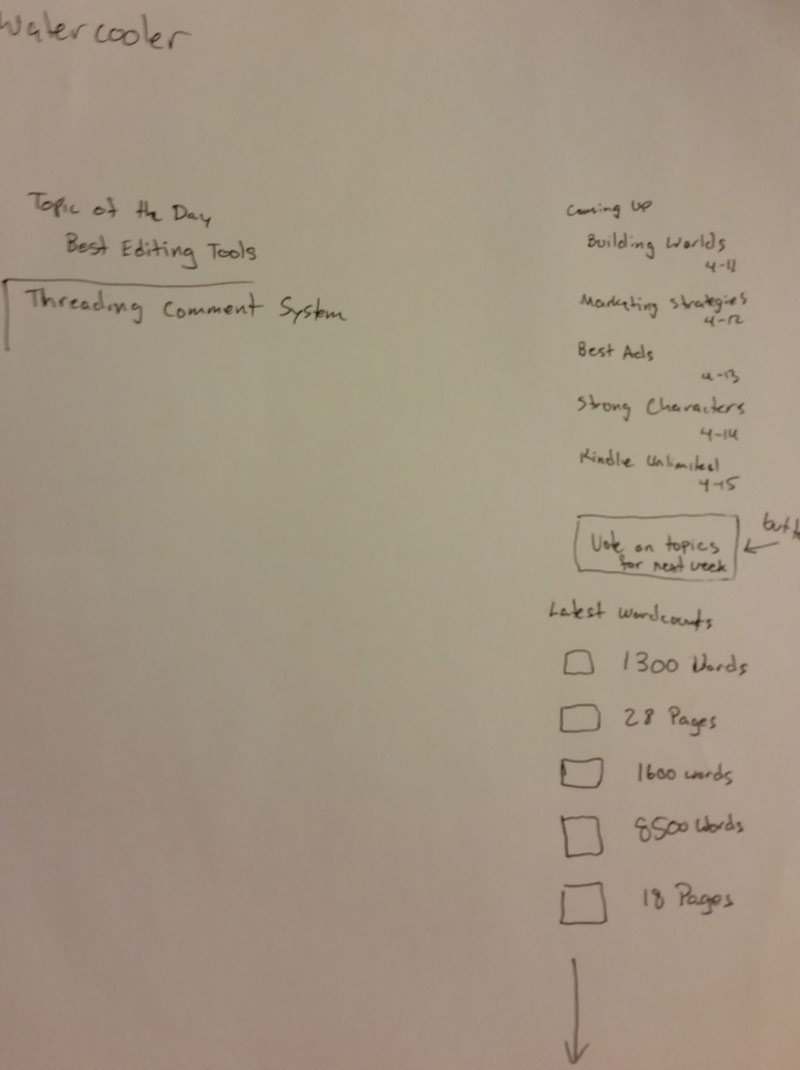 Watercooler
Topic of the Day
Best Editing Tools
Threading Comment System
Coming Up
Building Worlds
4-11
Marketing Strategies
4-12
Best Ads
4-13
Strong Characters
4-14
Kindle Unlimited
4-15
Vote on topics
for next week
Latest wordcounts
1300 Words
28 Pages
1600 words
8500 Words
18 Pages